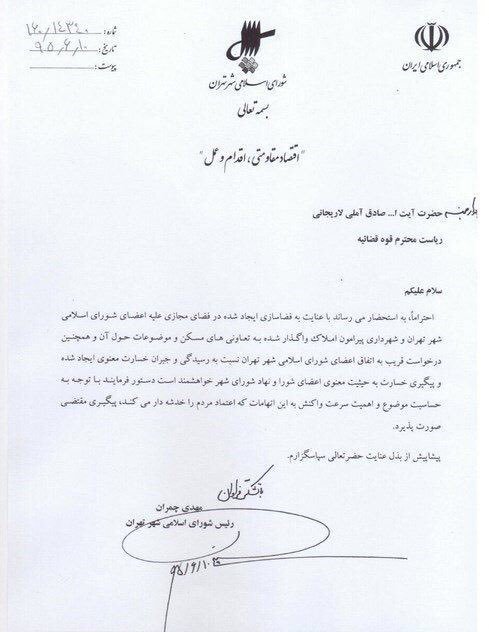 شماره: ۱۶۰/۱۴۳۴۰
تاریخ: ۹۵/۶/۱۰
پیوست:
جمهوری اسلامی ایران
شورای اسلامی شهر تهران
بسمه تعالی
"اقتصاد مقاومتی، اقدام و عمل"
حضرت آیت ا... صادق آملی لاریجانی
ریاست محترم قوه قضائیه
سلام علیکم
احتراماً، به استحضار می رساند با عنایت به فضاسازی ایجاد شده در فضای مجازی علیه اعضای شورای اسلامی
شهر تهران و شهرداری پیرامون املاک واگذار شده به تعاونی های مسکن و موضوعات حول آن و همچنین
درخواست قریب به اتفاق اعضای شورای اسلامی شهر تهران نسبت به رسیدگی و جبران خسارت معنوی ایجاد شده
و پیگیری خسارت به حیثیت معنوی اعضای شورا و نهاد شورای شهر خواهشمند است دستور فرمایند با توجه به
حساسیت موضوع و اهمیت سرعت واکنش به این اتهامات که اعتماد مردم را خدشه دار می کند، پیگیری مقتضی
صورت پذیرد.
پیشاپیش از بذل عنایت حضرتعالی سپاسگزارم.
با تشکر فراوان
مهدی چمران
رئیس شورای اسلامی شهر تهران
۹۵/۶/۱۰